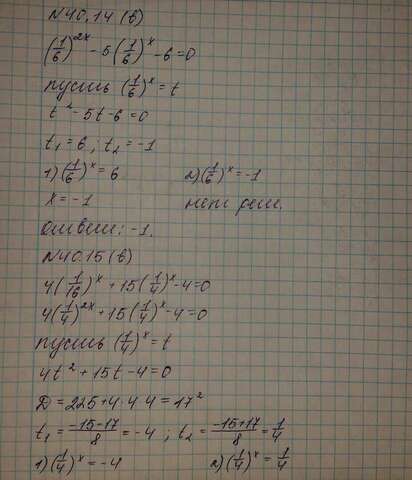 N40.14 (в)
(1/6)^2x - 5(1/6)^x - 6 = 0
пусть (1/6)^x = t
t^2 - 5t - 6 = 0
t₁ = 6 ; t₂ = -1
1) (1/6)^x = 6 2) (1/6)^x = -1
x = -1 нет реш.
ответ: -1.
N40.15 (в)
4(1/16)^x + 15(1/4)^x - 4 = 0
4(1/4)^2x + 15(1/4)^x - 4 = 0
пусть (1/4)^x = t
4t^2 + 15t - 4 = 0
D = 225 + 4·4·4 = 17^2
t₁ = (-15-17)/8 = -4 ; t₂ = (-15+17)/8 = 1/4
1) (1/4)^x = -4 2) (1/4)^x = 1/4